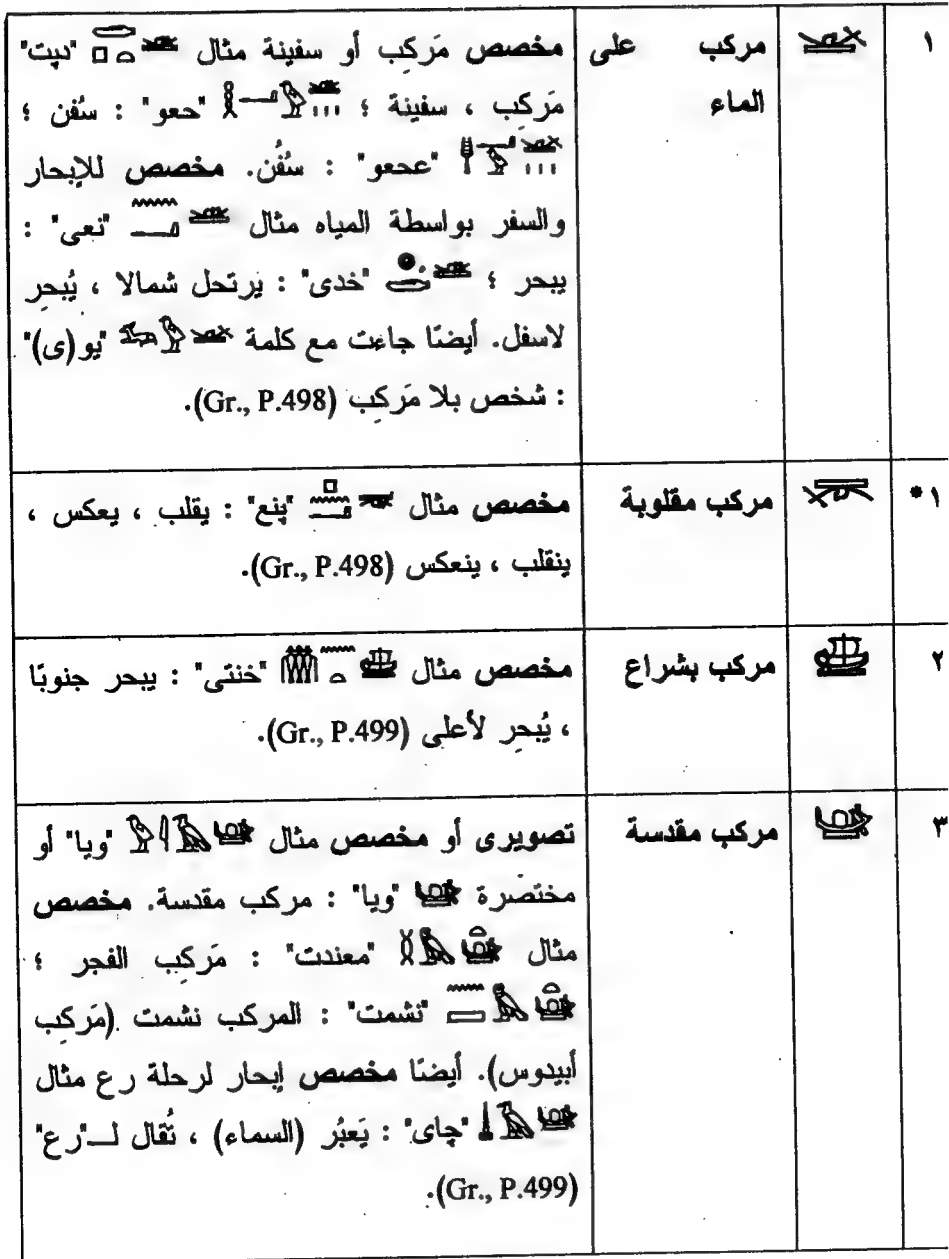 ١ 𓊛 مركب على الماء مخصص مَركِب أو سفينة مثال "دپت"
مَركِب ، سفينة ؛ "حعو" : سُفن ؛
"عحعو" : سُفُن. مخصص للإبحار
والسفر بواسطة المياه مثال "نعى" :
يبحر ؛ "خدى" : يرتحل شمالا ، يُبحر
لاسفل. أيضًا جاءت مع كلمة "يو(ى)"
: شخص بلا مَركِب (Gr., P.498).
١* 𓊜 مركب مقلوبة مخصص مثال "پنع" : يقلب ، يعكس ،
ينقلب ، ينعكس (Gr., P.498).
٢ 𓊞 مركب بشراع مخصص مثال "خنتى" : يبحر جنوبًا
، يُبحر لأعلى (Gr., P.499).
٣ 𓊟 مركب مقدسة تصويرى أو مخصص مثال "ويا" أو
مختصرة "ويا" : مركب مقدسة. مخصص
مثال "معندت" : مَركِب الفجر ؛
"نشمت" : المركب نشمت (مَركِب
أبيدوس). أيضًا مخصص إبحار لرحلة رع مثال
"چاى" : يَعبُر (السماء) ، تُقال لـ"رع"
(Gr., P.499).